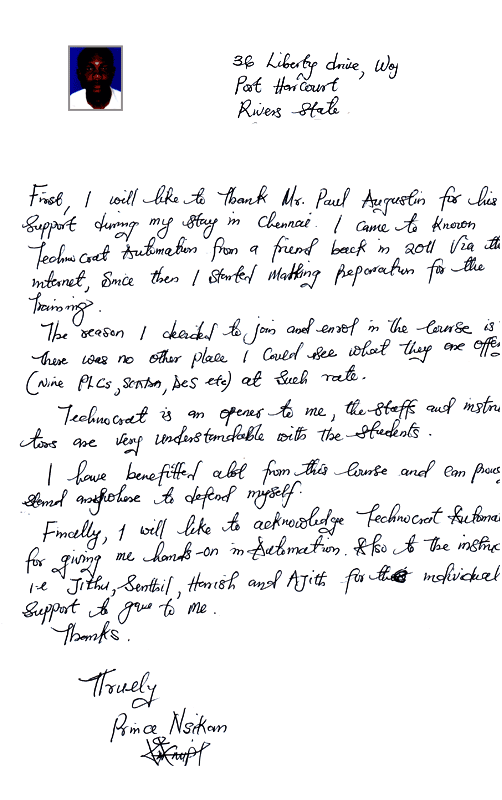 36 Liberty drive, Woj
Port Harcourt
Rivers State.
First, I will like to thank Mr. Paul Augustin for his
Support during my stay in Chennai. I came to known
Technocrat Automation from a friend back in 2011 Via the
internet, Since then I started Making preparation for the
training.
The reason I decided to join and enrol in the Course is
there was no other place I Could see what they are offe
(Nine PLCs, SCADA, DCS etc) at Such rate.
Technocrat is an opener to me, the staffs and instru
tors are very understandable with the Students.
I have benefitted alot from this Course and can prou
stand anywhere to defend myself.
Finally, I will like to acknowledge Technocrat Automa
for giving me hands-on in Automation. Also to the instru
i.e Jithu, Senthil, Harish and Ajith for individual
Support to gave to me.
Thanks.
Truely
Prince Nsikan